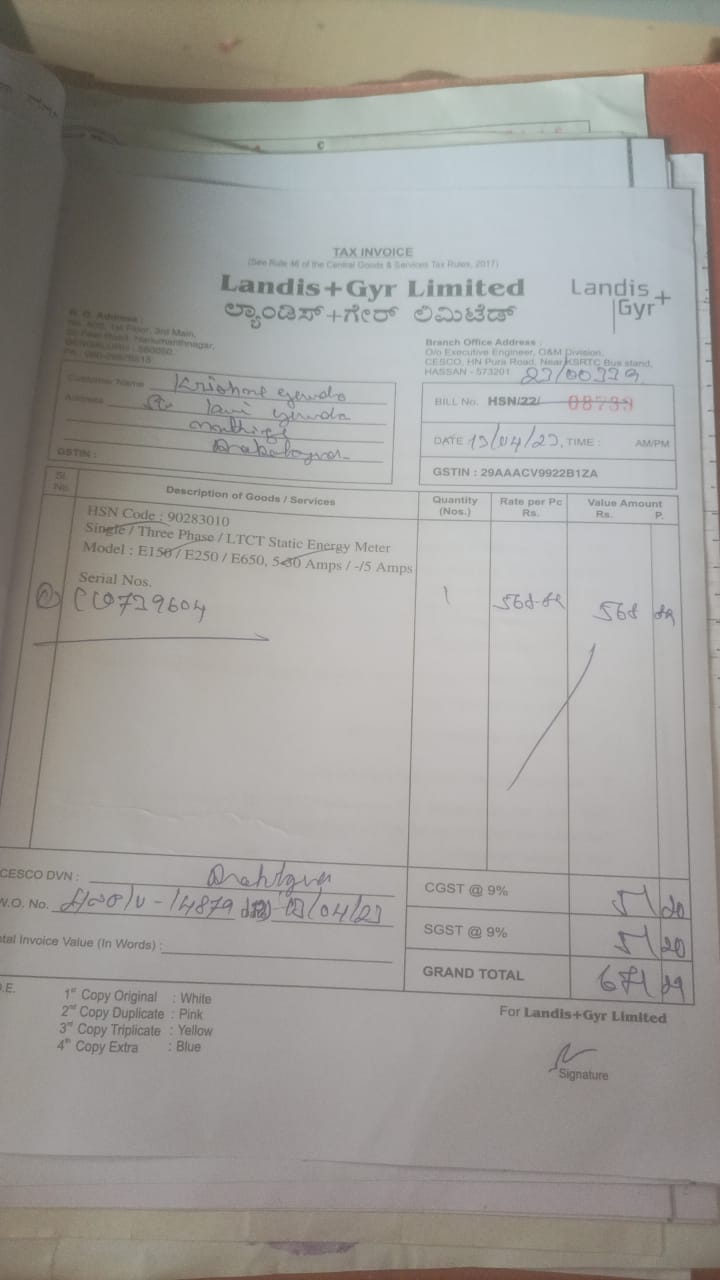 TAX INVOICE
(See Rule 46 of the Central Goods & Services Tax Rules, 2017)
Landis+Gyr Limited
ಲ್ಯಾಂಡಿಸ್+ಗೇರ್ ಲಿಮಿಟೆಡ್
Landis
Gyr+
R. O. Address :
1st Floor, 3rd Main,
Hanumanthnagar,
Branch Office Address :
O/o Executive Engineer, O&M Division,
CESCO, HN Pura Road, Near KSRTC Bus stand,
HASSAN - 573201
23/00339
Customer Name Krishne gowda
Address
GSTIN :
BILL No. HSN/22/ 08739
DATE 13/04/23, TIME : AM/PM
GSTIN : 29AAACV9922B1ZA
Sl. No. Description of Goods / Services Quantity (Nos.) Rate per Pc Rs. Value Amount Rs. P.
HSN Code : 90283010
Single / Three Phase / LTCT Static Energy Meter
Model : E150 / E250 / E650, 5-30 Amps / -/5 Amps
Serial Nos.
739604 1 568 568
CESCO DVN :
W.O. No. 14879 13/04/23
CGST @ 9% 51 20
SGST @ 9% 51 20
Total Invoice Value (In Words) :
GRAND TOTAL 671 29
1st Copy Original : White
2nd Copy Duplicate : Pink
3rd Copy Triplicate : Yellow
4th Copy Extra : Blue
For Landis+Gyr Limited
Signature